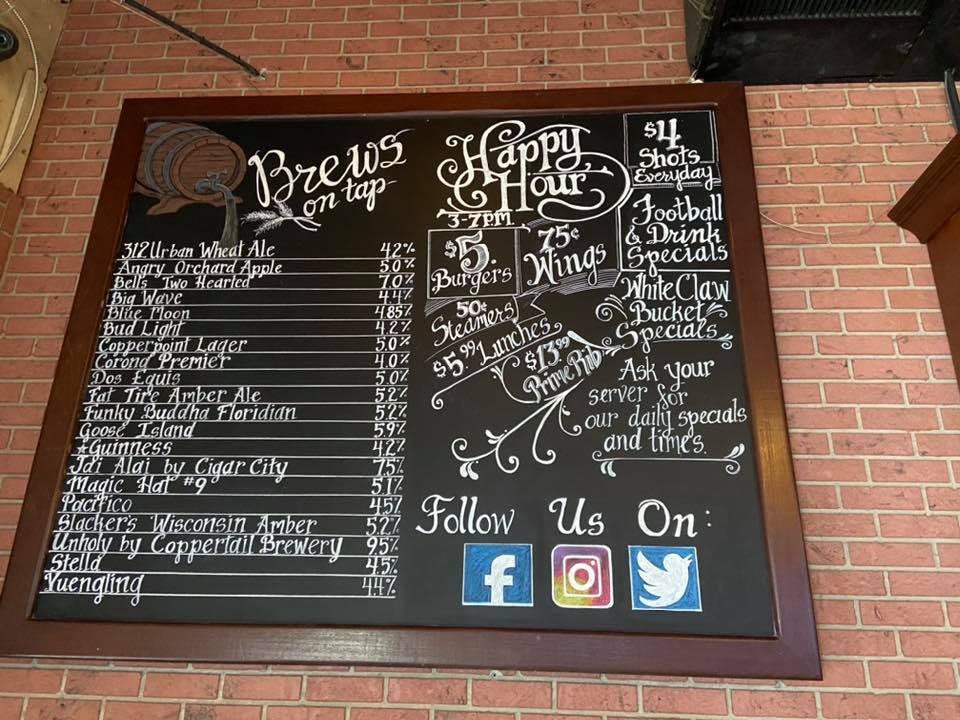 Brews
on tap
312 Urban Wheat Ale 4.2%
Angry Orchard Apple 5.0%
Bells Two Hearted 7.0%
Big Wave 4.4%
Blue Moon 4.85%
Bud Light 4.2%
Copperpoint Lager 5.0%
Corona Premier 4.0%
Dos Equis 5.0%
Fat Tire Amber Ale 5.2%
Funky Buddha Floridian 5.2%
Goose Island 5.9%
Guinness 4.2%
Jai Alai by Cigar City 7.5%
Magic Hat #9 5.1%
Pacifico 4.5%
Slackers Wisconsin Amber 5.2%
Unholy by Coppertail Brewery 9.5%
Stella 4.5%
Yuengling 4.4%
Happy
Hour
3-7P.M.
$5.
Burgers
75¢
Wings
50¢
Steamers
$5.99 Lunches
$13.99
Prime Rib
$4
Shots
Everyday
Football
& Drink
Specials
White Claw
Bucket
Specials
Ask your
server for
our daily specials
and times.
Follow Us On: